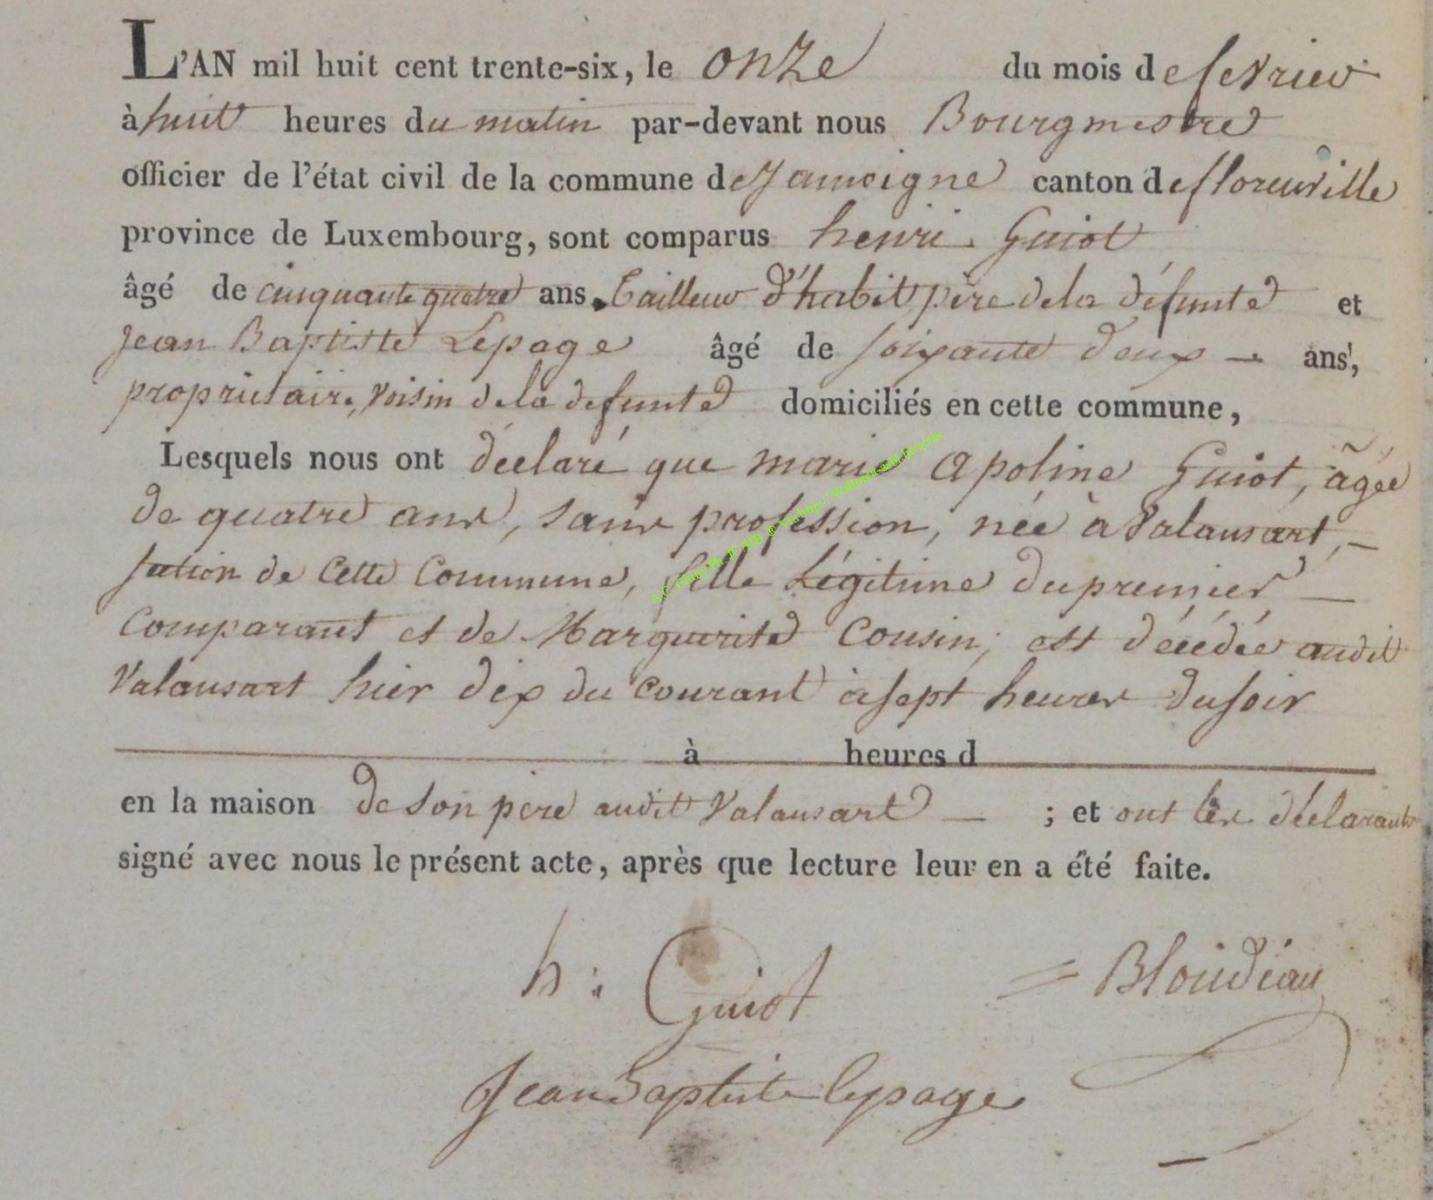 L'AN mil huit cent trente-six, le onze du mois de fevrier
à huit heures du matin par-devant nous Bourgmestre
officier de l'état civil de la commune de Jamoigne canton de florenville
province de Luxembourg, sont comparus henri Guiot
âgé de cinquante quatre ans, tailleur d'habit père de la défunte et
Jean Baptiste Lepage âgé de soixante deux - ans,
propriétaire, voisin de la defunte domiciliés en cette commune,
Lesquels nous ont déclaré que marie apoline Guiot, âgée
de quatre ans, sans profession, née à Valansart, -
section de cette Commune, fille Légitime du premier -
Comparant et de Marguerite Cousin, est décédée audit
Valansart hier dix du courant à sept heures du soir
à heures d
en la maison de son père audit Valansart - ; et ont les déclarants
signé avec nous le présent acte, après que lecture leur en a été faite.
h: Guiot = Bloudiau
Jean Baptiste lepage